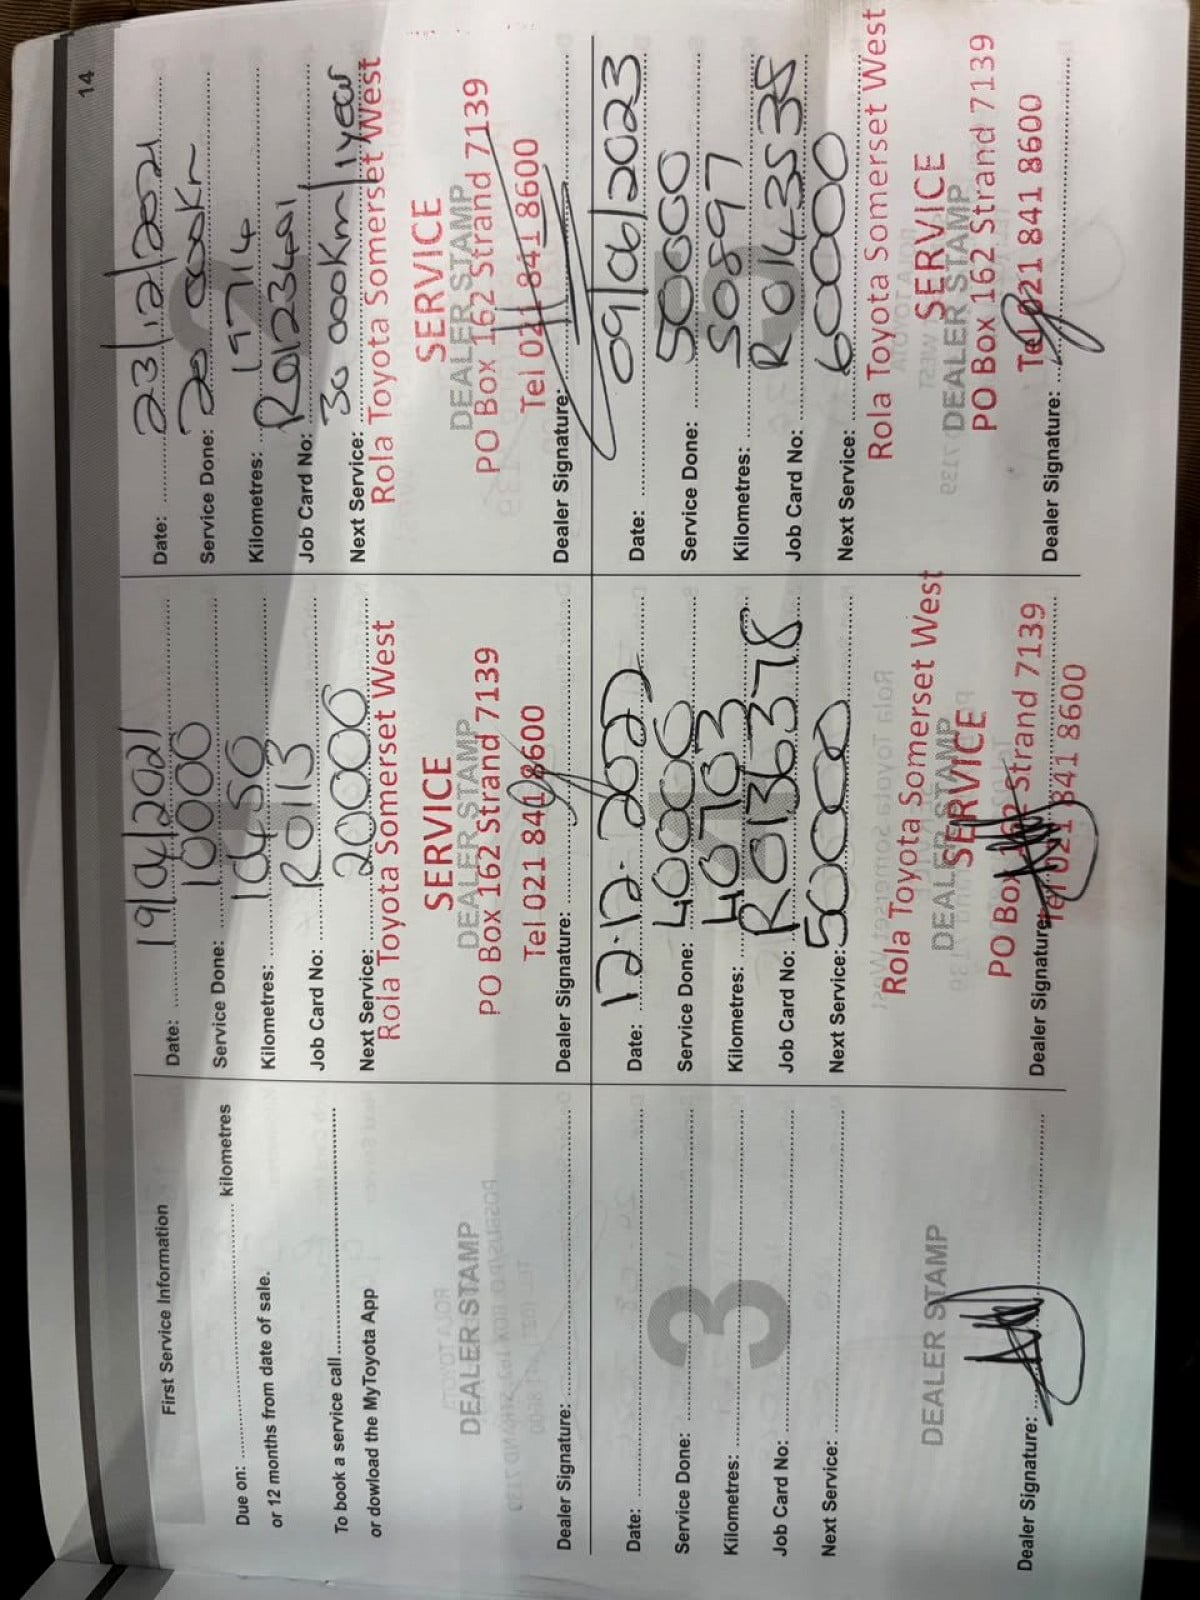 14
First Service Information
Due on: kilometres
or 12 months from date of sale.
To book a service call
or dowload the MyToyota App
DEALER STAMP
Dealer Signature:
Date: 19/04/2021
Service Done: 10000
Kilometres: 10450
Job Card No: R0113
Next Service: 20000
Rola Toyota Somerset West
SERVICE
DEALER STAMP
PO Box 162 Strand 7139
Tel 021 841 8600
Dealer Signature:
Date: 23/12/2021
Service Done: 20 000Km
Kilometres: 19714
Job Card No: R0123401
Next Service: 30 000Km/1year
Rola Toyota Somerset West
SERVICE
DEALER STAMP
PO Box 162 Strand 7139
Tel 021 841 8600
Dealer Signature:
3
Date:
Service Done:
Kilometres:
Job Card No:
Next Service:
DEALER STAMP
Dealer Signature:
Date: 12-12-2022
Service Done: 40000
Kilometres: 40703
Job Card No: R0136378
Next Service: 50000
Rola Toyota Somerset West
DEALER STAMP
SERVICE
PO Box 162 Strand 7139
Tel 021 841 8600
Dealer Signature:
Date: 09/06/2023
Service Done: 50000
Kilometres: 50897
Job Card No: R0143538
Next Service: 60000
Rola Toyota Somerset West
SERVICE
DEALER STAMP
PO Box 162 Strand 7139
Tel 021 841 8600
Dealer Signature: